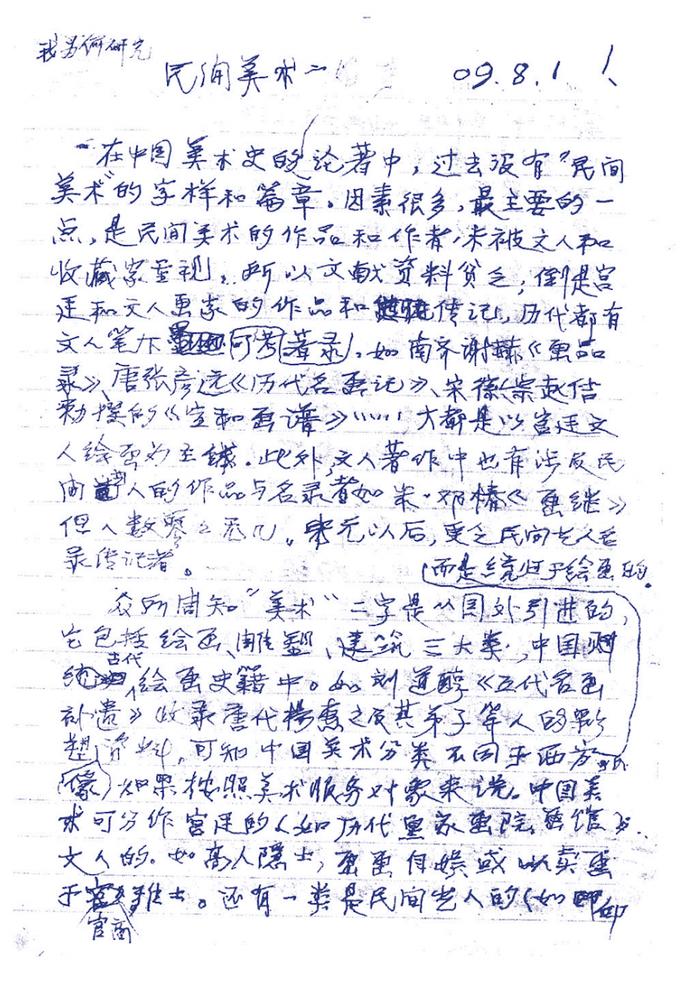 我如何研究
民间美术
09.8.1 1、
在中国美术史的论著中，过去没有"民间
美术"的字样和篇章。因素很多，最主要的一
点，是民间美术的作品和作者，未被文人和
收藏家重视，所以文献资料贫乏；倒是宫
廷和文人画家的作品和传记，历代都有
文人笔下可考著录，如南齐谢赫《画品
录》、唐张彦远《历代名画记》、宋徽宗赵佶
勅撰的《宣和画谱》……，大都是以宫廷文
人绘画为主线。此外，文人著作中也有涉及民
间艺人的作品与名录者如宋·邓椿《画继》
但人数寥寥无几。宋元以后，更乏民间艺人名
录传记者。
而是统归于绘画的。
众所周知"美术"二字是从国外引进的，
它包括绘画、雕塑、建筑三大类，中国则
统 古代绘画史籍中。如刘道醇《五代名画
补遗》收录唐代杨惠之及其弟子等人的影
塑资料，可知中国美术分类不同于西方
(像)如果按照美术服务对象来说。中国美
术可分作宫廷的（如历代皇家画院、画馆）、
文人的。如高人隐士，画画自娱或以卖画
于官商雅士。还有一类是民间艺人的（如印